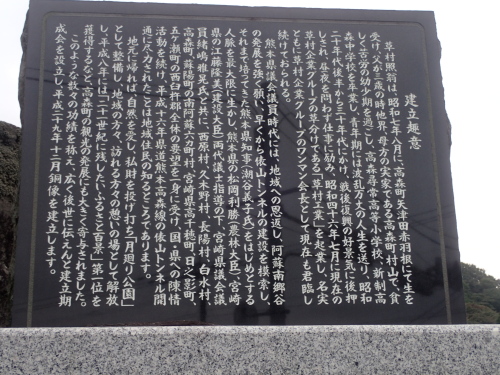 建立趣意
草村照前は、昭和七年八月に、高森町矢津田赤羽根にて生を
受け、父が三歳の時他界、母方の実家である高森町村山で、食
しく辛労な幼少期を過ごし、高森尋常高等小学校、新制高
森中学校を卒業し、青年期には波乱万丈の人生を送り、昭和
二十年代後半から三十年代にかけ、戦後復興の好景気に後押
しされ、昼夜を問わず仕事に励み、昭和四十八年七月に現在の
草村企業グループの草分けである「草村工業」を起業し、名実
ともに草村企業グループのワンマン会長として現在も君臨し
続けておられる。
熊本県議会議員時代には、地域への恩返し、阿蘇南郷谷
の発展を強く願い、早くから俵山トンネルの建設を摸索し、
それまで培ってきた熊本県知事(潮谷義子氏)をはじめとする
人脈を最大限に生かし、熊本県の松岡利勝(農林大臣)、宮崎
県の江藤隆美(建設大臣)両代議士指導の下、宮崎県議会議
員緒嶋雅晃氏と共に、西原村、久木野村、長陽村、白水村、
高森町、蘇陽町の南阿蘇六ヵ町村、宮崎県高千穂町、日之影町、
五ヶ瀬町の西臼杵郡全体の要望を一身に受け、国・県への陳情
活動を続け、平成十六年県道熊本高森線の俵山トンネル開
通に尽力されたことは地域住民の知るところであります。
地元に帰れば、自然を愛し、私財を投げ打ち「月廻り公園」
として整備し、地域の方々、訪れる方々の憩いの場として解放
し、平成八年には「二十一世紀に残したいふるさと百景」第一位を
獲得するなど、高森町の観光の発展にも大きく寄与されました。
このような数々の功績を称え、広く後世に伝えんと建立期
成会を設立し、平成二十九年十二月銅像を建立します。